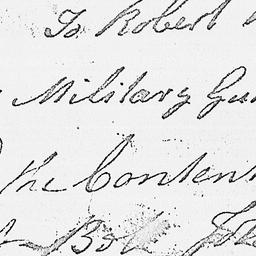 To Robert
Military Gun
the Content
Bot